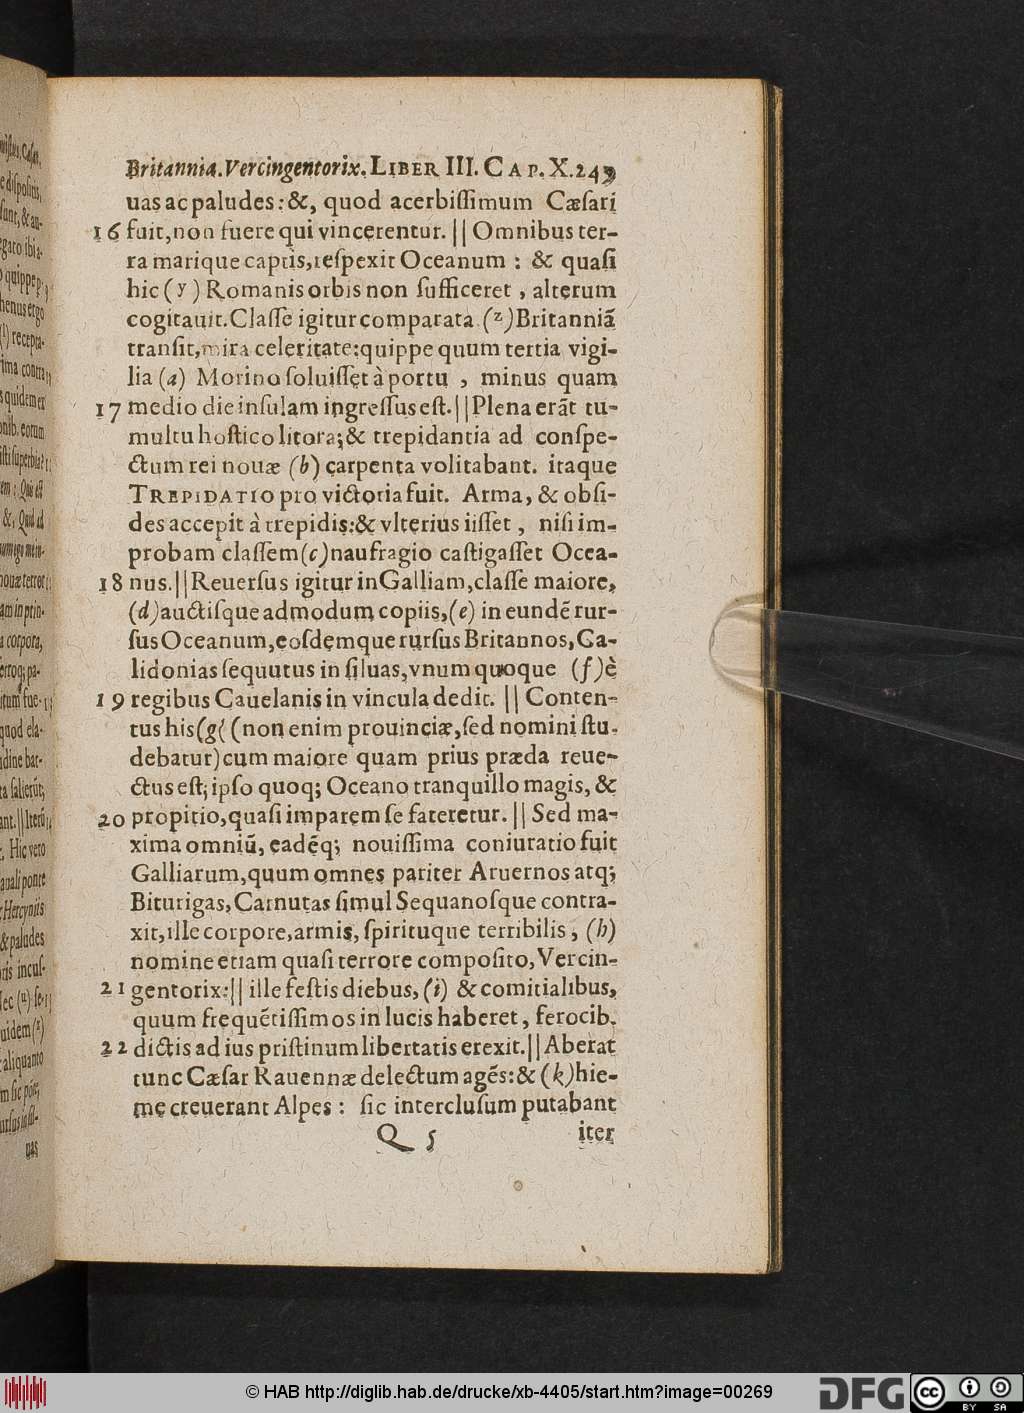 Britannia. Vercingentorix. LIBER III. CAP. X. 249
uas ac paludes: &, quod acerbiſſimum Cæſari
16 fuit, non fuere qui vincerentur. || Omnibus ter-
ra marique captis, reſpexit Oceanum : & quaſi
hic (y) Romanis orbis non ſufficeret , alterum
cogitauit. Claſſe igitur comparata (z) Britanniã
tranſit, mira celeritate: quippe quum tertia vigi-
lia (a) Morino ſoluiſſet à portu , minus quam
17 medio die inſulam ingreſſus eſt. || Plena erãt tu-
multu hoſtico litora; & trepidantia ad conſpe-
ctum rei nouæ (b) carpenta volitabant. itaque
TREPIDATIO pro victoria fuit. Arma, & obſi-
des accepit à trepidis: & vlterius iiſſet , niſi im-
probam claſſem (c) naufragio caſtigaſſet Ocea-
18 nus. || Reuerſus igitur in Galliam, claſſe maiore,
(d) auctiſque admodum copiis, (e) in eundẽ rur-
ſus Oceanum, eoſdemque rurſus Britannos, Ca-
lidonias ſequutus in ſiluas, vnum quoque (f) è
19 regibus Cauelanis in vincula dedit. || Conten-
tus his (g( (non enim prouinciæ, ſed nomini ſtu-
debatur) cum maiore quam prius præda reue-
ctus eſt; ipſo quoq; Oceano tranquillo magis, &
20 propitio, quaſi imparem ſe fateretur. || Sed ma-
xima omniũ, eadẽq; nouiſſima coniuratio fuit
Galliarum, quum omnes pariter Aruernos atq;
Biturigas, Carnutas ſimul Sequanoſque contra-
xit, ille corpore, armis, ſpirituque terribilis , (h)
nomine etiam quaſi terrore compoſito, Vercin-
21 gentorix: || ille feſtis diebus, (i) & comitialibus,
quum frequẽtiſſimos in lucis haberet , ferocib.
22 dictis ad ius priſtinum libertatis erexit. || Aberat
tunc Cæſar Rauennæ delectum agẽs: & (k) hie-
me creuerant Alpes : ſic intercluſum putabant
Q 5 iter
© HAB http://diglib.hab.de/drucke/xb-4405/start.htm?image=00269
DFG
cc BY SA